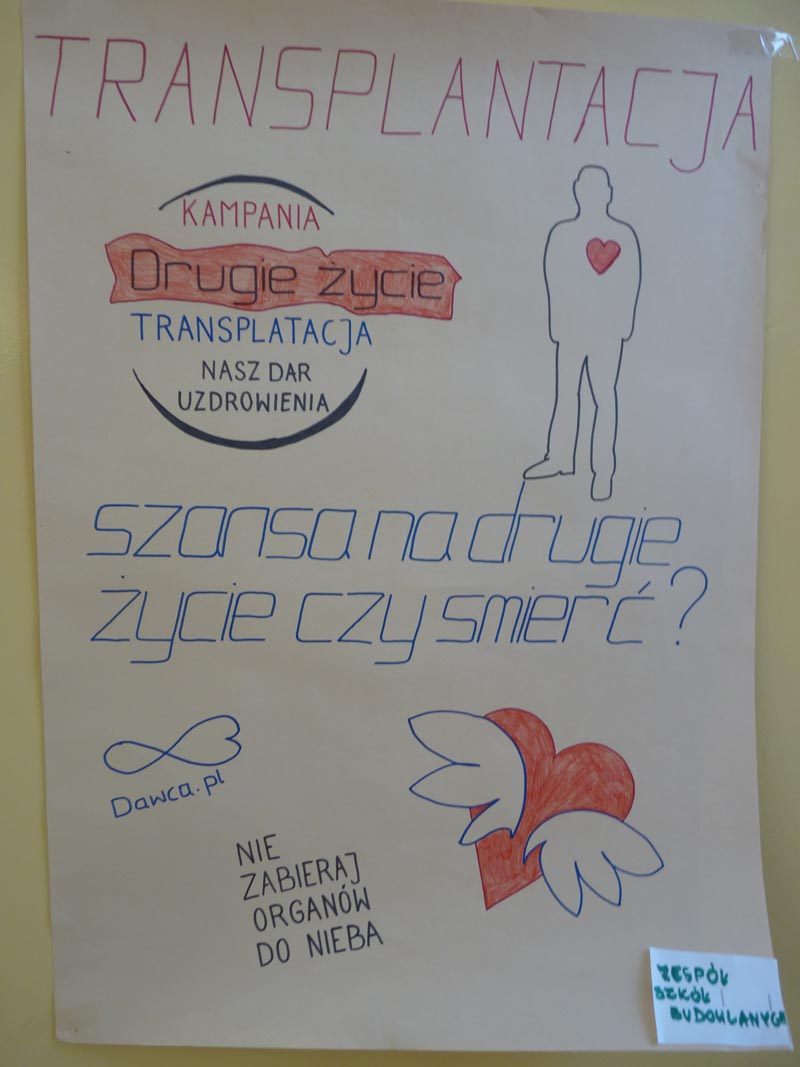 TRANSPLANTACJA
KAMPANIA
Drugie życie
TRANSPLATACJA
NASZ DAR
UZDROWIENIA
szansa na drugie
życie czy smierć?
Dawca.pl
NIE
ZABIERAJ
ORGANÓW
DO NIEBA
ZESPÓŁ
SZKÓŁ
BUDOWLANYCH